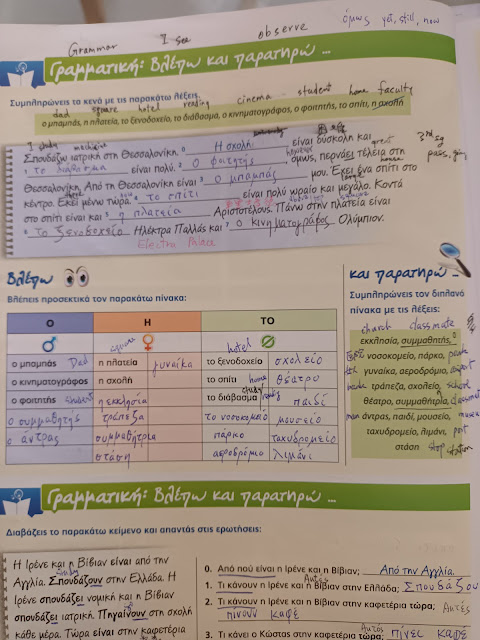 όμως yet, still, now
Grammar I see observe
Γραμματική: Βλέπω και παρατηρώ ...
Συμπληρώνεις τα κενά με τις παρακάτω λέξεις.
dad square hotel reading cinema student home faculty
ο μπαμπάς, η πλατεία, το ξενοδοχείο, το διάβασμα, ο κινηματογράφος, ο φοιτητής, το σπίτι, η σχολή
I study medicine
Σπουδάζω ιατρική στη Θεσσαλονίκη. Η σχολή είναι δύσκολη και
1 το διάβασμα είναι πολύ. 2 ο φοιτητής όμως, περνάει τέλεια στη
Θεσσαλονίκη. Από τη Θεσσαλονίκη είναι 3 ο μπαμπάς μου. Έχει ένα σπίτι στο
κέντρο. Εκεί μένω τώρα. 4 το σπίτι είναι πολύ ωραίο και μεγάλο. Κοντά
στο σπίτι είναι και 5 η πλατεία Αριστοτέλους. Πάνω στην πλατεία είναι
6 το ξενοδοχείο Ηλέκτρα Παλλάς και 7 ο κινηματογράφος Ολύμπιον.
Electra Palace
Βλέπω
Βλέπεις προσεκτικά τον παρακάτω πίνακα:
Ο Η ΤΟ
square hotel
ο μπαμπάς Dad η πλατεία γυναίκα το ξενοδοχείο σχολείο
ο κινηματογράφος η σχολή το σπίτι home θέατρο
ο φοιτητής student η εκκλησία το διάβασμα study παιδί
ο συμμαθητής τράπεζα το νοσοκομείο μουσείο
ο άντρας συμμαθήτρια πάρκο ταχυδρομείο
στάση αεροδρόμιο λιμάνι
και παρατηρώ ...
Συμπληρώνεις τον διπλανό
πίνακα με τις λέξεις:
church classmate
εκκλησία, συμμαθητής,
νοσοκομείο, πάρκο, park
γυναίκα, αεροδρόμιο, airport
τράπεζα, σχολείο, school
θέατρο, συμμαθήτρια, classmate
man άντρας, παιδί, μουσείο, museum
ταχυδρομείο, λιμάνι, port
στάση stop station
Γραμματική: Βλέπω και παρατηρώ ...
Διαβάζεις το παρακάτω κείμενο και απαντάς στις ερωτήσεις:
Η Ιρένε και η Βίβιαν είναι από την
Αγγλία. Σπουδάζουν στην Ελλάδα. Η
Ιρένε σπουδάζει νομική και η Βίβιαν
σπουδάζει ιατρική. Πηγαίνουν στη σχολή
κάθε μέρα. Τώρα είναι στην καφετέρια
0. Από πού είναι η Ιρένε και η Βίβιαν; Από την Αγγλία.
Αυτές
1. Τι κάνουν η Ιρένε και η Βίβιαν στην Ελλάδα; Σπουδάζου
2. Τι κάνουν η Ιρένε και η Βίβιαν στην καφετέρια τώρα; Αυτές
πίνουν καφέ
Αυτός
3. Τι κάνει ο Κώστας στην καφετέρια τώρα; πίνει καφέ